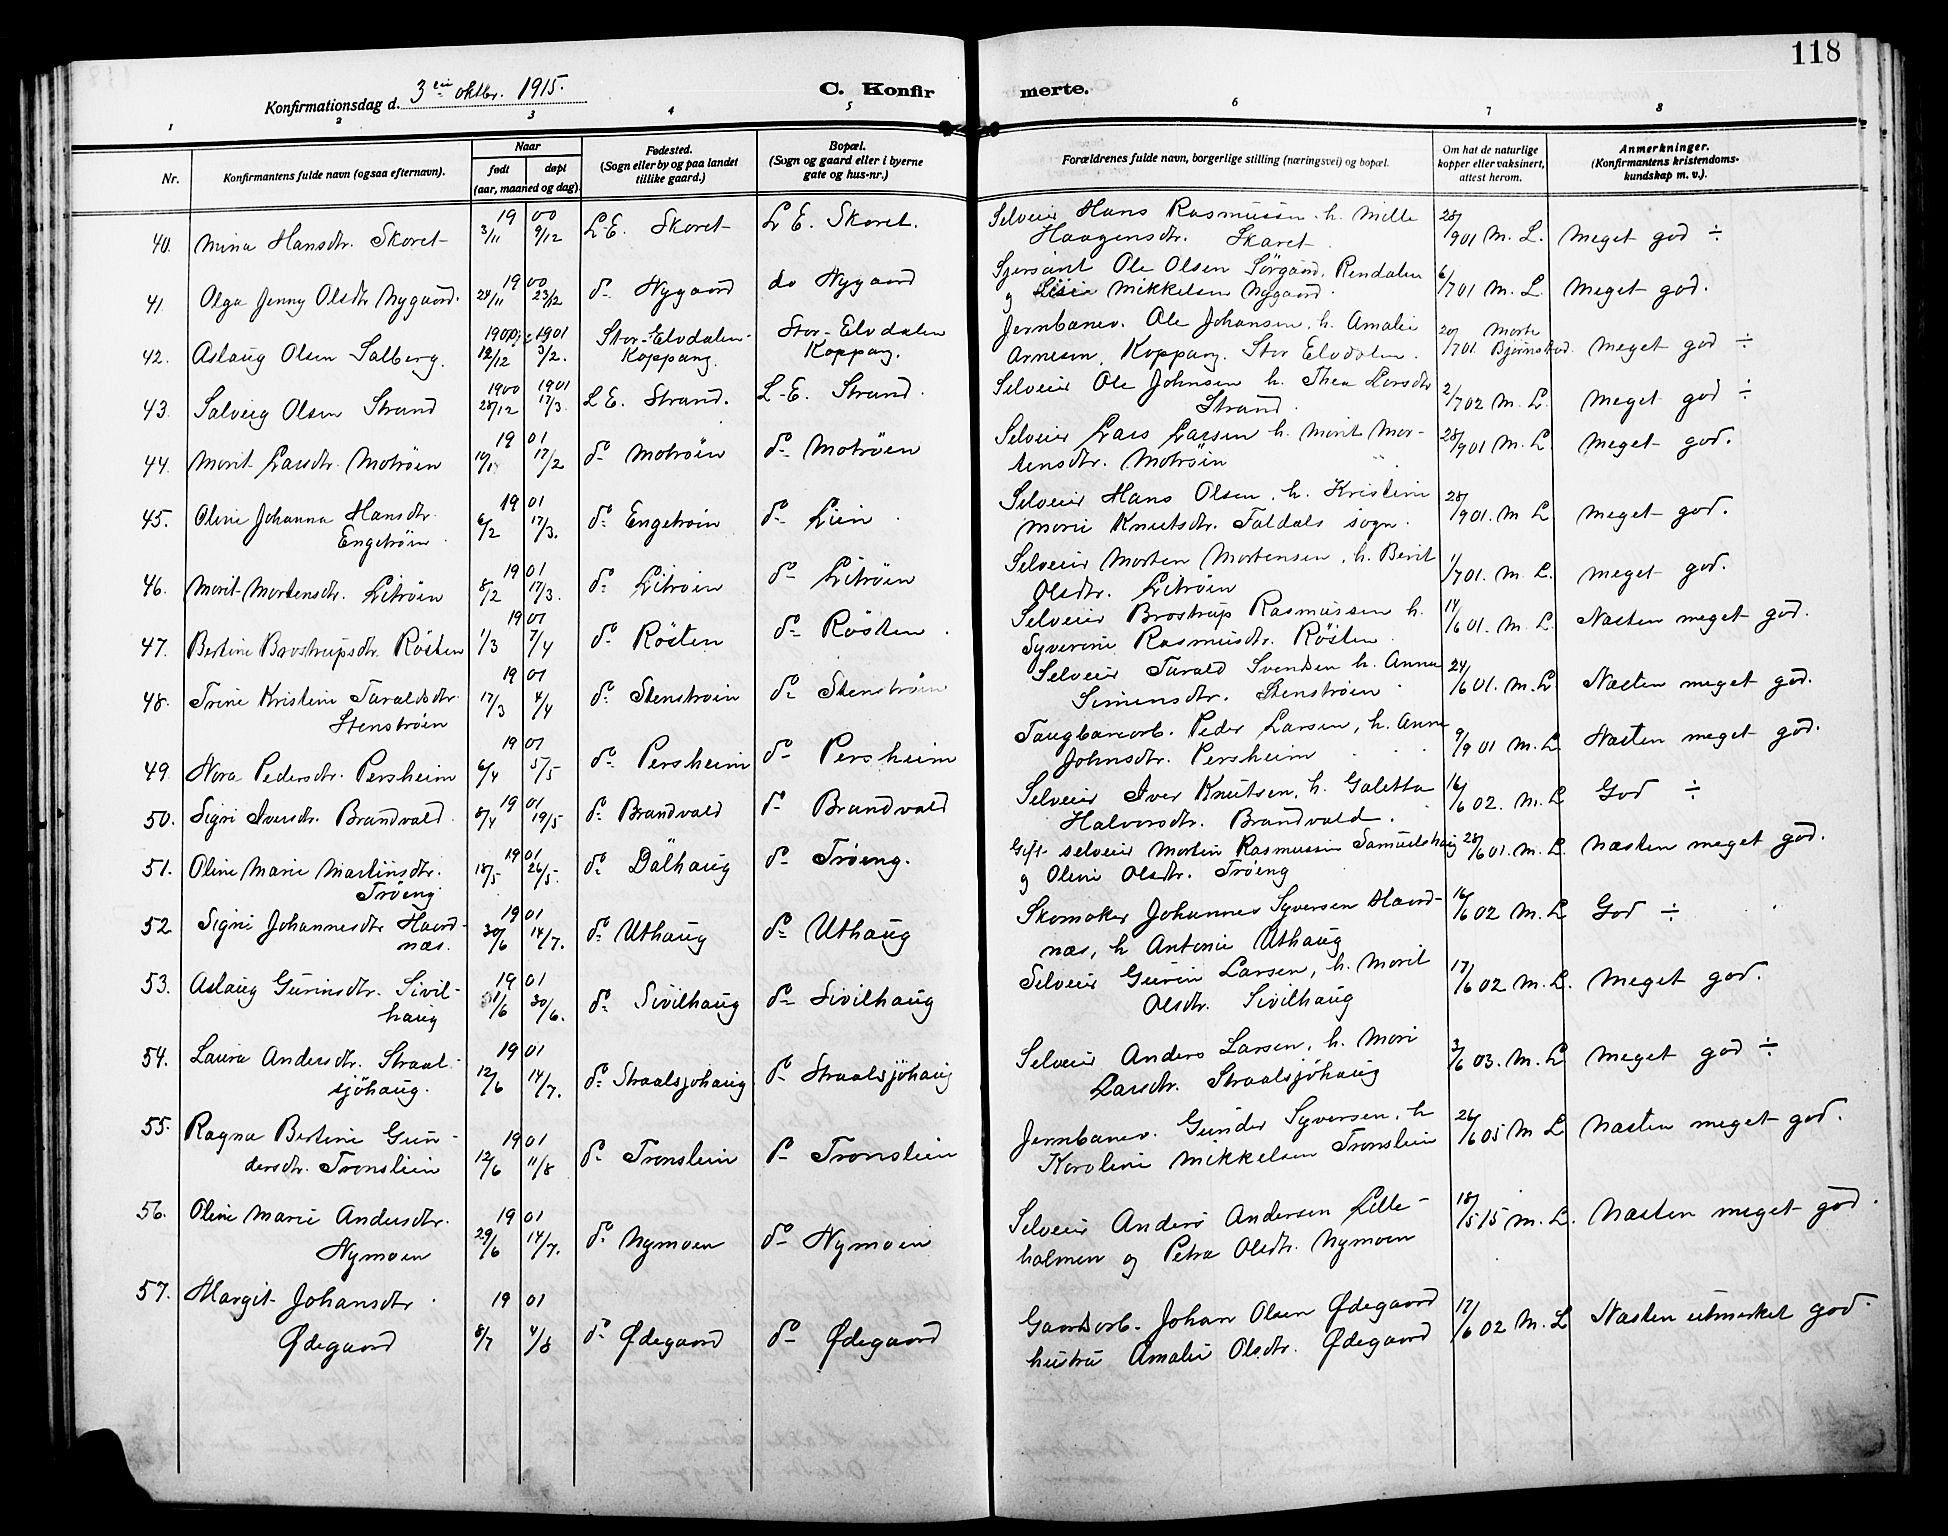 118
Konfirmationsdag d. 3die oktbr. 1915.
C. Konfirmerte.
1 2 3 4 5 6 7 8
Nr.
Konfirmantens fulde navn (ogsaa efternavn).
Naar
født døpt
(aar, maaned og dag)
Fødested.
(Sogn eller by og paa landet
tillike gaard.)
Bopæl.
(Sogn og gaard eller i byerne
gate og hus-nr.)
Forældrenes fulde navn, borgerlige stilling (næringsvei) og bopæl.
Om hat de naturlige
kopper eller vaksinert,
attest herom.
Anmerkninger.
(Konfirmantens kristendoms-
kundskap m. v.).
40. Mina Hansdtr. Skoret 19 00 3/11 9/12 L.E. Skoret L.E. Skoret. Selveier Hans Rasmussen, h. Mille 28/901 M. L. Meget god ÷
Haagensdtr. Skaret
41. Olga Jenny Olsdtr Nygaard. 19 00 24/11 23/12 do Nygaard do Nygaard Sjersant Ole Olsen Sørgaard, Rendalen 6/701 M. L. Meget god.
og Mikkelsen Nygaard.
42. Aslaug Olsen Salberg. 1900 12/12 1901 3/2. Stor-Elvdalen Koppang Stor-Elvdalen Koppang. Jernbanev. Ole Johansen, h. Amalie 20/701 Morte Bjørnstad Meget god ÷
Arnesen, Koppang. Stor Elvdalen.
43. Solveig Olsen Strand 1900 28/12 1901 17/3. L E. Strand. L.E. Strand. Selveier Ole Johnsen h. Thea Larsdtr 2/702 M. L. Meget god ÷
Strand.
44. Marit Larsdtr. Motrøen 19 01 17/2 do Motrøen do Motrøen Selveier Lars Larsen h. Marit Mor- 28/901 M. L. Meget god.
tensdtr. Motrøen
45. Oline Johanna Hansdtr. 19 01 6/2 17/3. do Engetrøen do Lien. Selveier Hans Olsen, h. Kristine 28/901. M L Meget god.
Engetrøen. Marie Knutsdtr. Foldals sogn.
46. Marit Mortensdtr. Litrøen 19 01 8/2 17/3. do Litrøen do Litrøen Selveier Morten Mortensen, h. Berit 1/701. M. L. Meget god.
Olsdtr. Litrøen
47. Bertine Brostrupsdtr. Røsten 19 01 1/3 7/4 do Røsten do Røsten. Selveier Brostrup Rasmussen h. 14/601. M. L. Næsten meget god.
Syverine Rasmusdtr. Røsten.
48. Trine Kristine Taraldsdtr. 19 01 17/3 4/4 do Stenstrøen do Stenstrøen Selveier Tarald Svendsen h. Anna 24/601. M. L. Næsten meget god.
Stenstrøen Simensdtr. Stenstrøen.
49. Nora Pedersdtr. Persheim 19 01 6/4 5/5 do Persheim do Persheim Taugbanearb. Peder Larsen, h. Anne 9/901 M. L. Næsten meget god.
Johnsdtr. Persheim
50. Sigri Iversdtr. Brandvald. 19 01 8/4 19/5 do Brandvald do Brandvald Selveier Iver Knutsen, h. Galetta 16/602. M. L God ÷
Halvorsdtr. Brandvald.
51. Oline Marie Martinsdtr. 19 01 18/5 26/5. do Dalhaug do Trøeng. Gift selveier Martin Rasmussen Samuelshaug 28/601. M. L. Næsten meget god.
Trøeng og Oline Olsdtr. Trøeng
52. Signe Johannesdtr Haard- 19 01 30/6 14/7. do Uthaug do Uthaug Skomaker Johannes Syversen Haard- 16/602 M. L God ÷
næs. næs, h Antonie Uthaug
53. Aslaug Gurinsdtr. Sivil- 19 01 30/6. do Sivilhaug do Sivilhaug Selveier Gurin Larsen, h. Marit 17/602 M. L. Meget god.
haug Olsdtr. Sivilhaug
54. Laura Andersdtr. Straal- 19 01 12/6 14/7. do Straalsjøhaug do Straalsjøhaug Selveier Anders Larsen, h. Mari 3/603. M. L Meget god ÷
sjøhaug. Larsdtr. Straalsjøhaug
55. Ragna Bertine Gun- 19 01 12/6 11/8 do Tronslien do Tronslien Jernbanev. Gunder Syversen, h 26/605 M L Næsten meget god.
dersdtr. Tronslien Karoline Mikkelsen Tronslien
56. Oline Marie Andersdtr. 19 01 29/6 14/7. do Nymoen do Nymoen Selveier Anders Andersen Lille- 18/515 M. L. Næsten meget god.
Nymoen holmen og Petra Olsdtr. Nymoen
57. Margit Johansdtr. 19 01 8/7 4/8 do Ødegaard do Ødegaard Gaardarb. Johan Olsen Ødegaard 17/602 M. L Næsten utmerket god.
Ødegaard hustru Amalie Olsdtr. Ødegaard